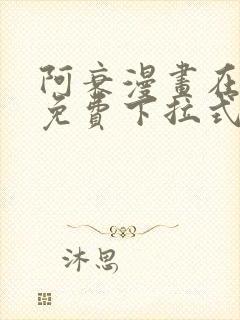 阿衰漫畫在
免費下拉式
沐思